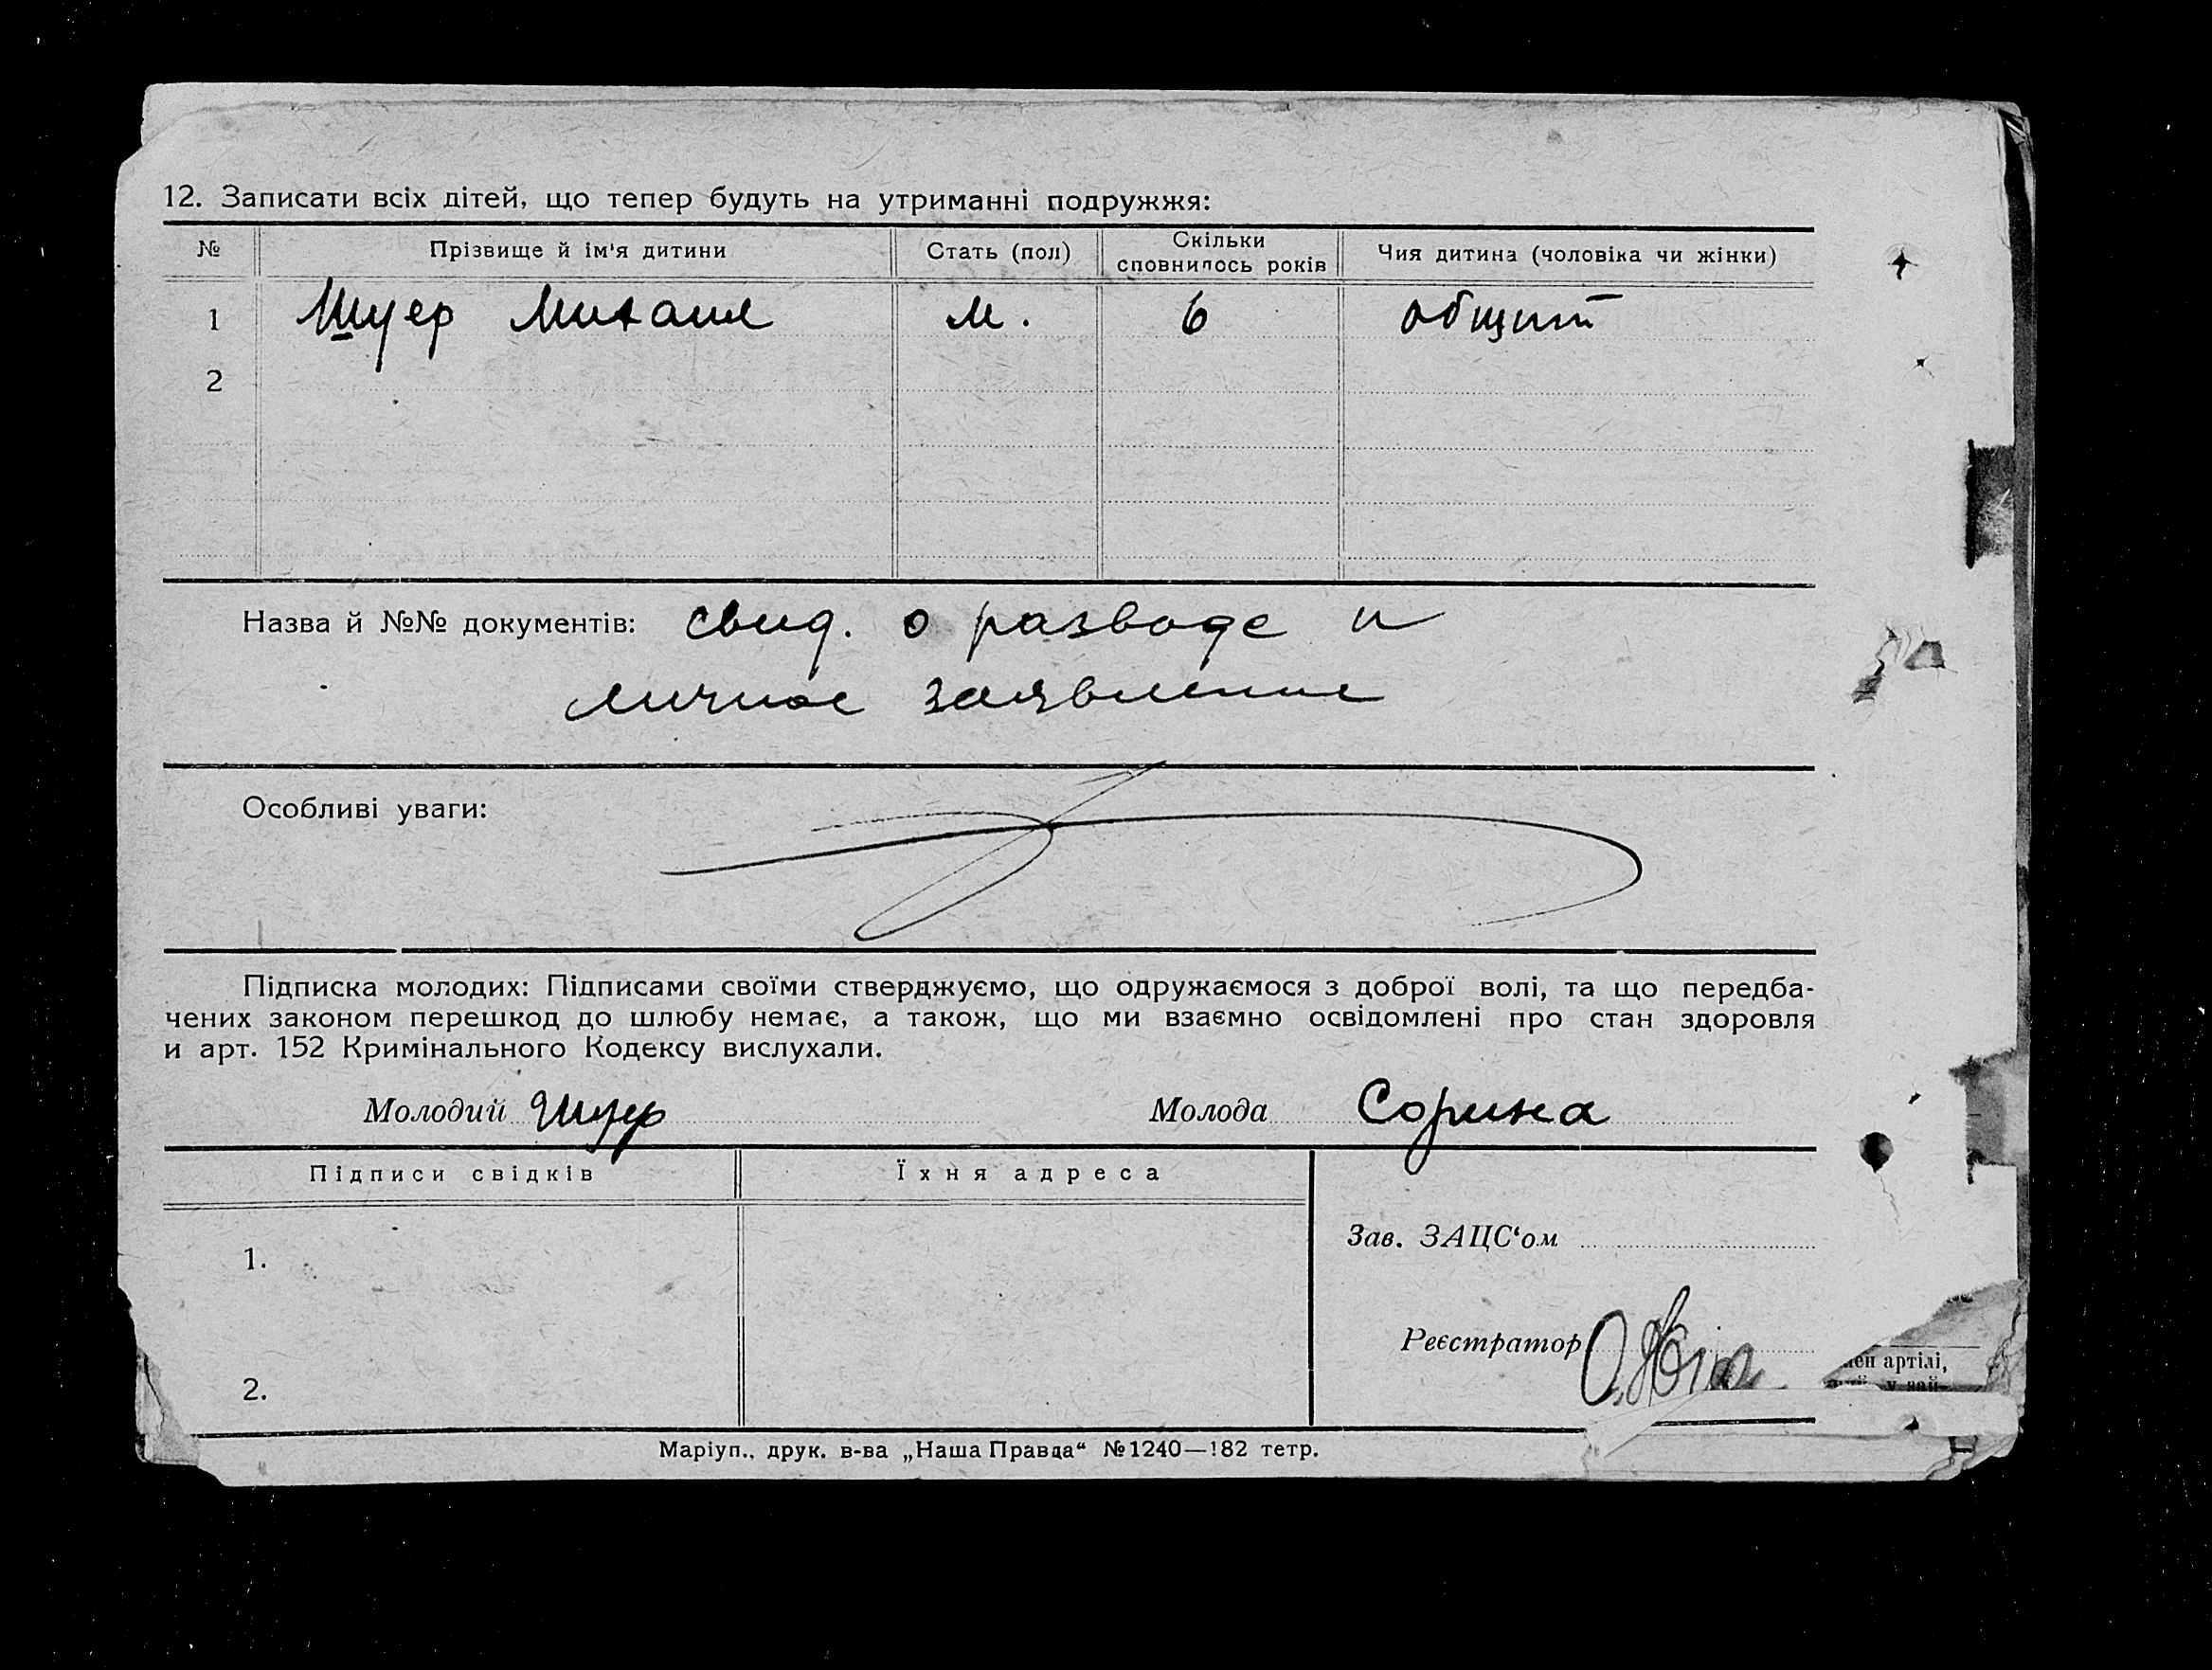 12. Записати всіх дітей, що тепер будуть на утриманні подружжя:
№ Прізвище й ім‘я дитини Стать (пол) Скільки сповнилось років Чия дитина (чоловіка чи жінки)
1 Шуер Михаил м. 6 общий
2
Назва й №№ документів: свид. о разводе и
личное заявление
Особливі уваги:
Підписка молодих: Підписами своїми стверджуємо, що одружаємося з доброї волі, та що передба-
чених законом перешкод до шлюбу немає, а також, що ми взаємно освідомлені про стан здоровля
и арт. 152 Кримінального Кодексу вислухали.
Молодий Шуер Молода Сорина
Підписи свідків Їхня адреса
Зав. ЗАЦС‘ом
1.
Реєстратор
артілі,
2.
Маріуп., друк. в-ва „Наша Правда“ №1240—182 тетр.